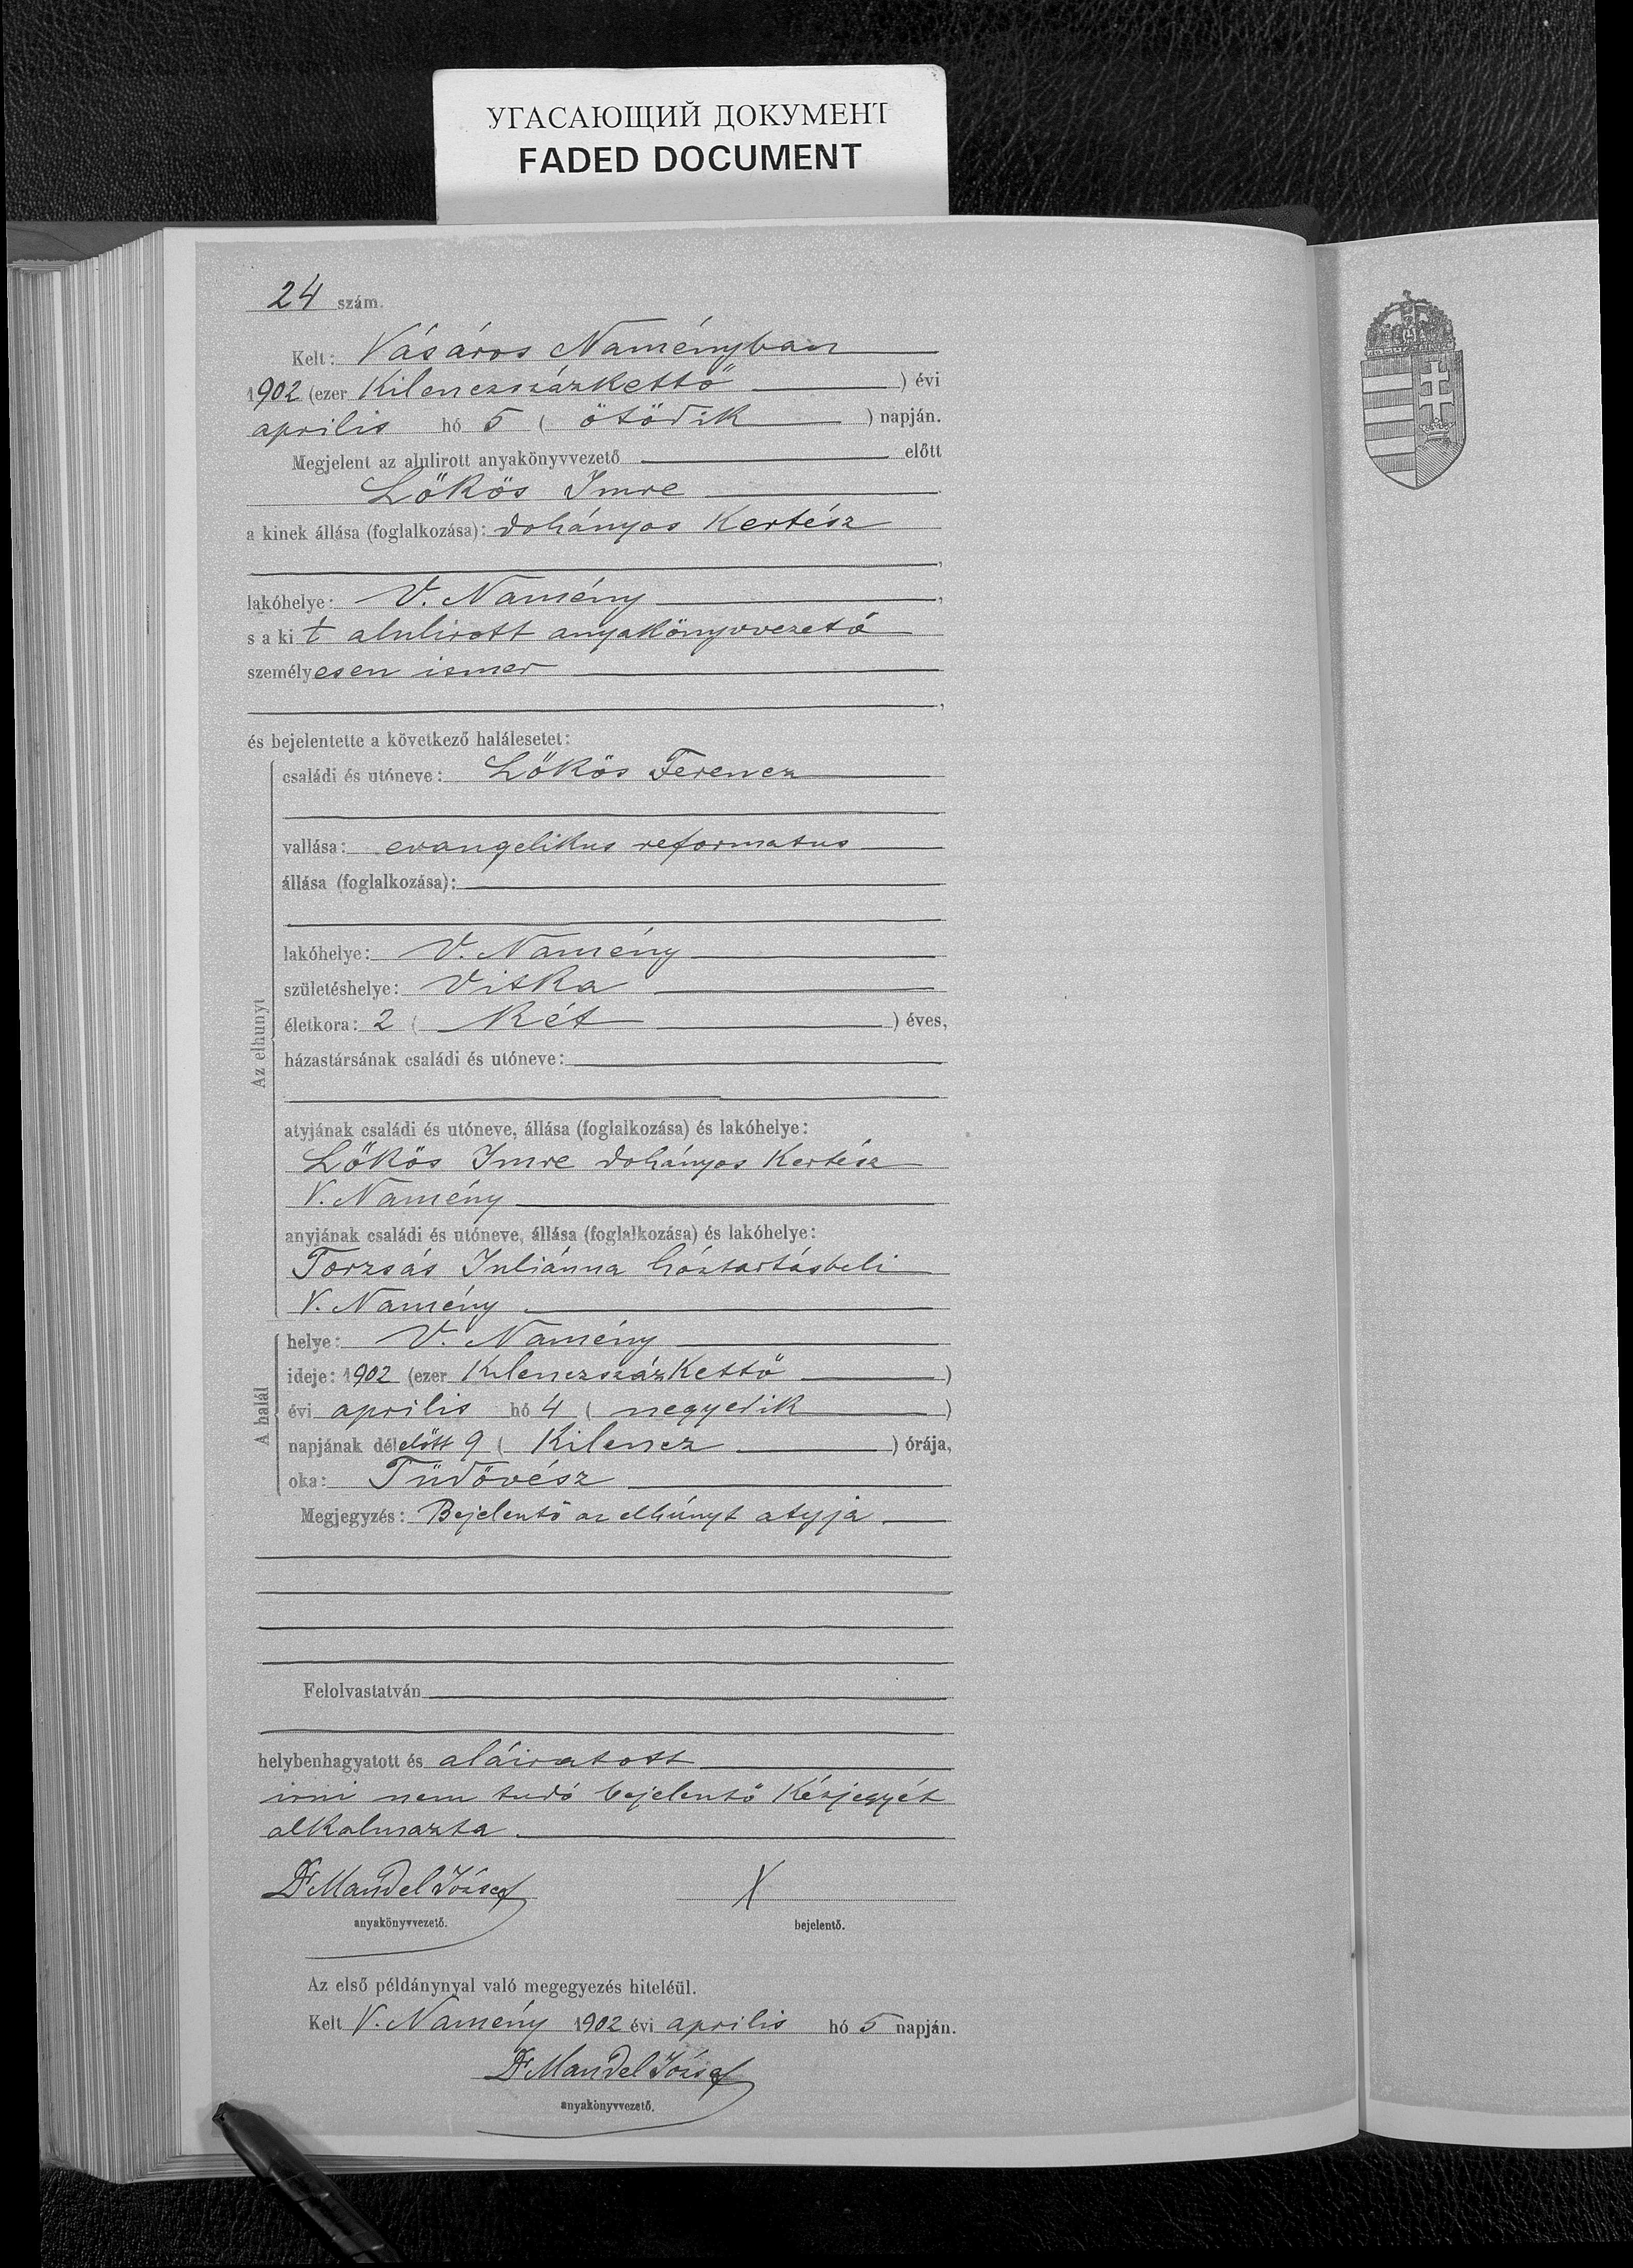 УГАСАЮЩИЙ ДОКУМЕНТ
FADED DOCUMENT
24 szám.
Kelt: Vásáros Naményban
1902 (ezer Kilenczszázkettő ) évi
aprilis hó 5 ( ötödik ) napján.
Megjelent az alulirott anyakönyvvezető előtt
Lőkös Imre
a kinek állása (foglalkozása): dohányos Kertész
lakóhelye: V. Namény,
s a kit alulirott anyakönyvvezető
személyesen ismer
és bejelentette a következő halálesetet:
Az elhunyt
családi és utóneve: Lőkös Ferencz
vallása: evangelikus reformatus
állása (foglalkozása):
lakóhelye: V. Namény
születéshelye: Vitka
életkora: 2 ( Két ) éves,
házastársának családi és utóneve:
atyjának családi és utóneve, állása (foglalkozása) és lakóhelye:
Lőkös Imre dohányos Kertész
V. Namény
anyjának családi és utóneve, állása (foglalkozása) és lakóhelye:
Torzsás Juliánna háztartásbeli
V. Namény
A halál
helye: V. Namény
ideje: 1902 (ezer Kilenczszázkettő )
évi aprilis hó 4 ( negyedik )
napjának délelőtt 9 ( Kilencz ) órája,
oka: Tüdővész
Megjegyzés: Bejelentő az elhúnyt atyja
Felolvastatván
helybenhagyatott és aláiratott
irni nem tudó bejelentő Kézjegyét
alkalmazta
Dr Mandel József X
anyakönyvvezető. bejelentő.
Az első példánynyal való megegyezés hiteléül.
Kelt V. Namény 1902 évi aprilis hó 5 napján.
Dr Mandel József
anyakönyvvezető.